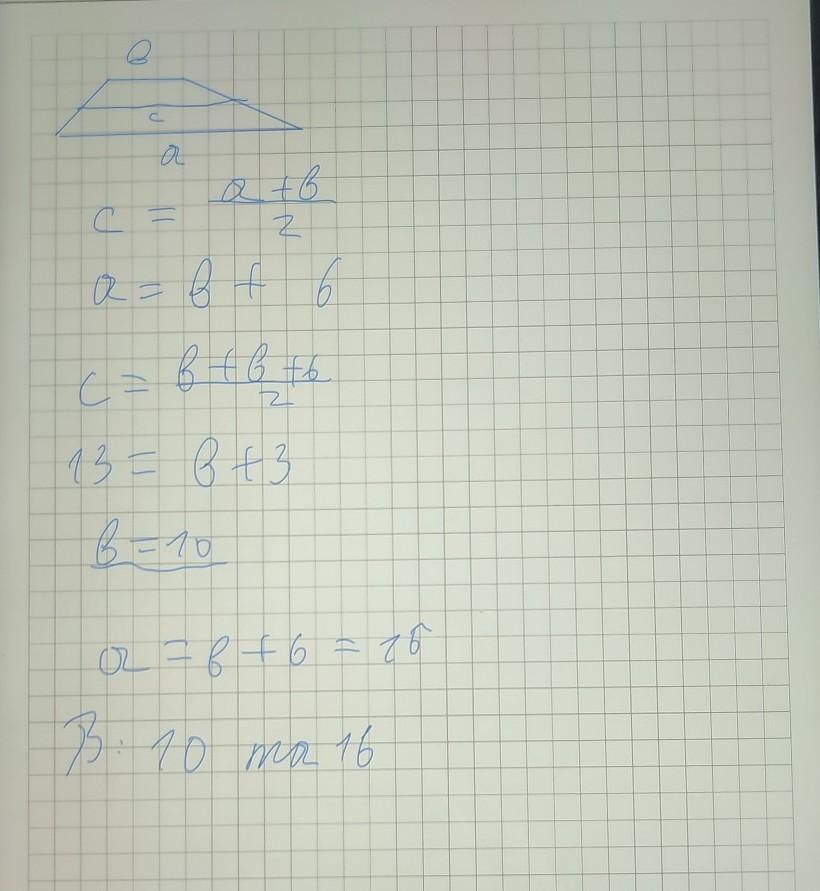 в
c
a
c = a + в / 2
a = в + 6
c = в + в + 6 / 2
13 = в + 3
в = 10
a = в + 6 = 16
В: 10 та 16